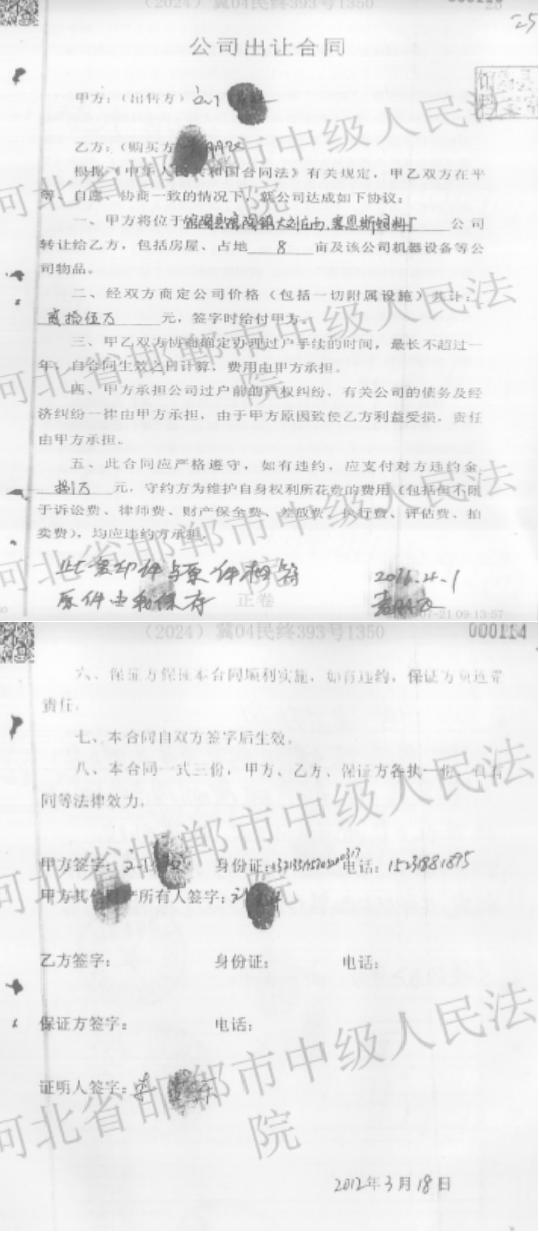 （2024）冀04民终393号1350
25
公司出让合同
甲方：（出售方）
乙方：（购买方
根据《中华人民共和国合同法》有关规定，甲乙双方在平
等、自愿、协商一致的情况下，就公司达成如下协议：
一、甲方将位于 公司
转让给乙方，包括房屋、占地 8 亩及该公司机器设备等公
司物品。
二、经双方商定公司价格（包括一切附属设施）共计：
贰拾伍万 元，签字时给付甲方。
三、甲乙双方协商确定办理过户手续的时间，最长不超过一
年，自合同生效之日计算，费用由甲方承担。
四、甲方承担公司过户前的产权纠纷，有关公司的债务及经
济纠纷一律由甲方承担，由于甲方原因致使乙方利益受损，责任
由甲方承担。
五、此合同应严格遵守，如有违约，应支付对方违约金
捌万 元，守约方为维护自身权利所花费的费用（包括但不限
于诉讼费、律师费、财产保全费、差旅费、执行费、评估费、拍
卖费），均应违约方承担。
此复印件与原件相符
原件由我保存
正卷
07-21 09:13:57
河北省邯郸市中级人民法院
（2024）冀04民终393号1350
000114
六、保证方保证本合同顺利实施，如有违约，保证方负连带
责任。
七、本合同自双方签字后生效。
八、本合同一式三份，甲方、乙方、保证方各执一份，具有
同等法律效力。
甲方签字： 身份证： 电话：15231881895
甲方其他财产所有人签字：
乙方签字： 身份证： 电话：
保证方签字： 电话：
证明人签字：
2012年3月18日
河北省邯郸市中级人民法院